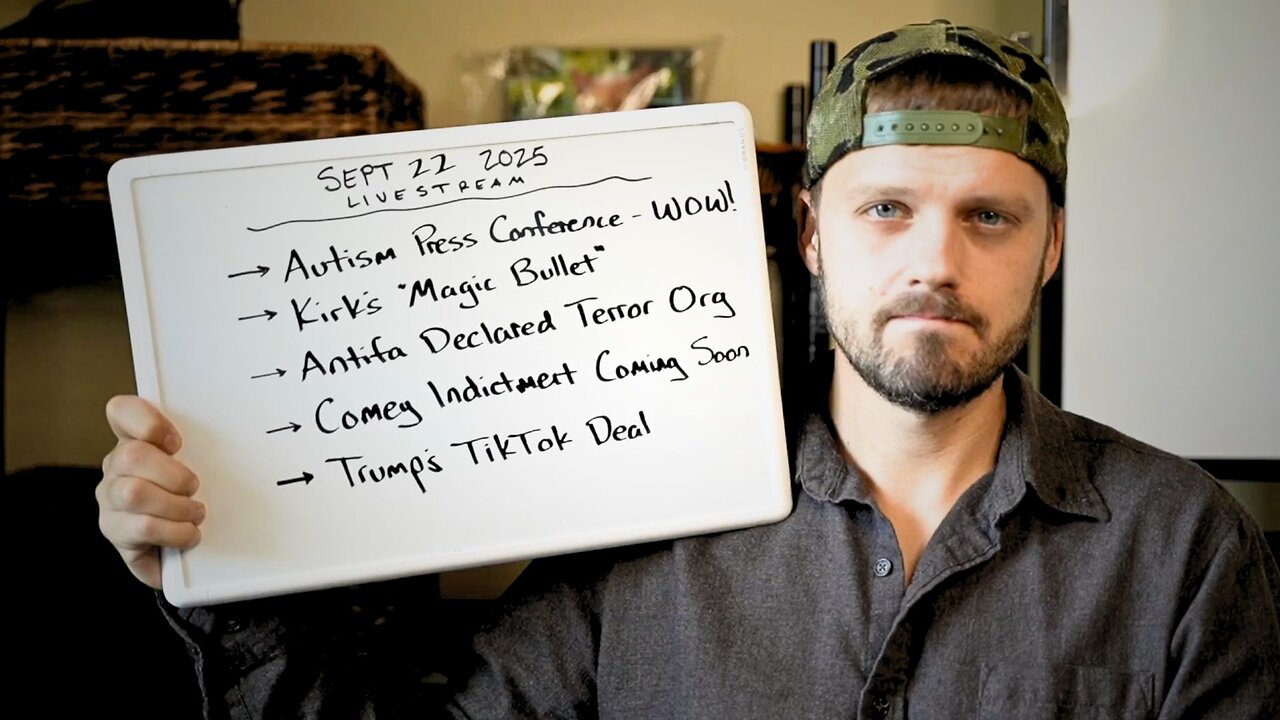 SEPT 22 2025
LIVESTREAM
→ Autism Press Conference - WOW!
→ Kirk's "Magic Bullet"
→ Antifa Declared Terror Org
→ Comey Indictment Coming Soon
→ Trump's TikTok Deal